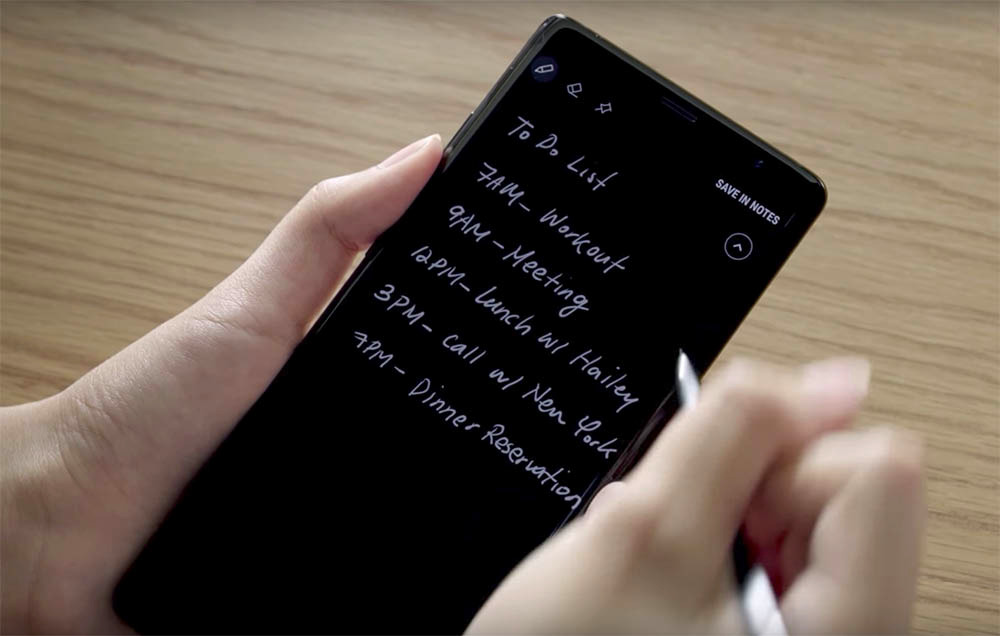 To Do List
SAVE IN NOTES
7AM- Workout
9AM - Meeting
12PM- Lunch w/ Hailey
3PM- call w/ New York
7PM- Dinner Reservation